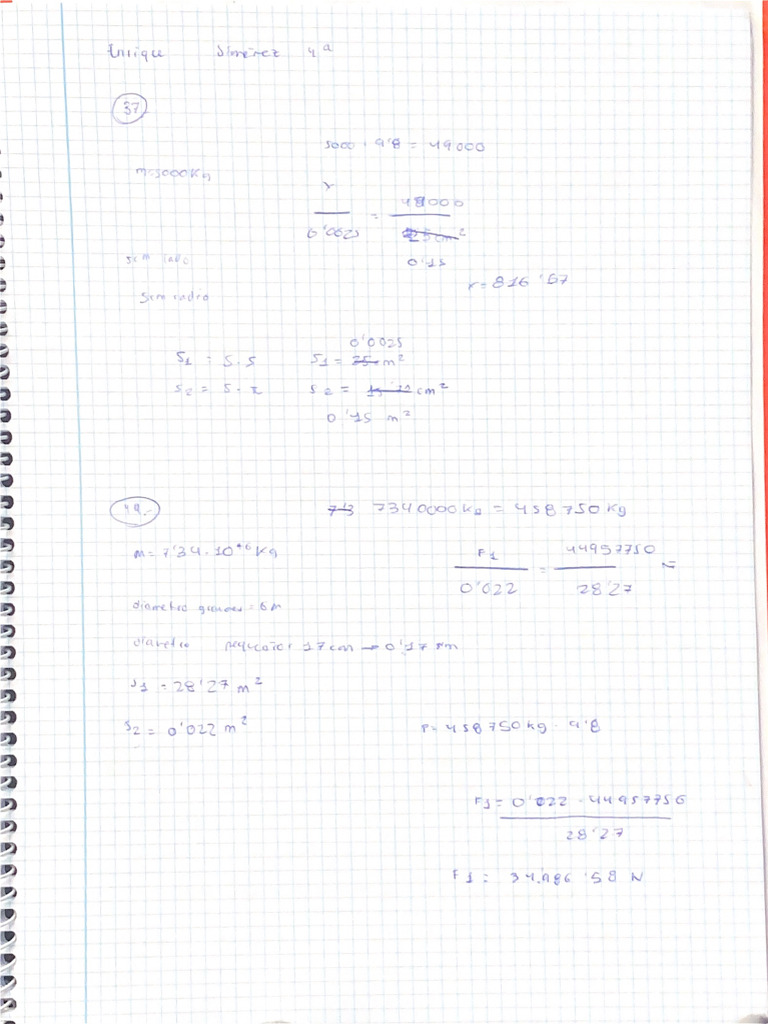 Enrique Jimenez 4ª
37
5000 · 9'8 = 49000
m=5000Kg
r / 0'0025 = 49000 / 25 cm²
0'15
5cm lado
r = 816'67
5cm radio
0'0025
S1 = 5·5 S1 = 25 m²
S2 = 5·π S2 = cm²
0'15 m²
49.-
73 7340000Kg = 458750Kg
m= 7'34·10⁺⁶ Kg
F1 / 0'022 = 44957750 / 28'27 =
diametro grande = 6m
diametro pequeño: 17cm → 0'17 m
S1 = 28'27 m²
S2 = 0'022 m²
P= 458750kg · 9'8
F1 = 0'022 · 44957756
28'27
F1 = 34.986'58 N